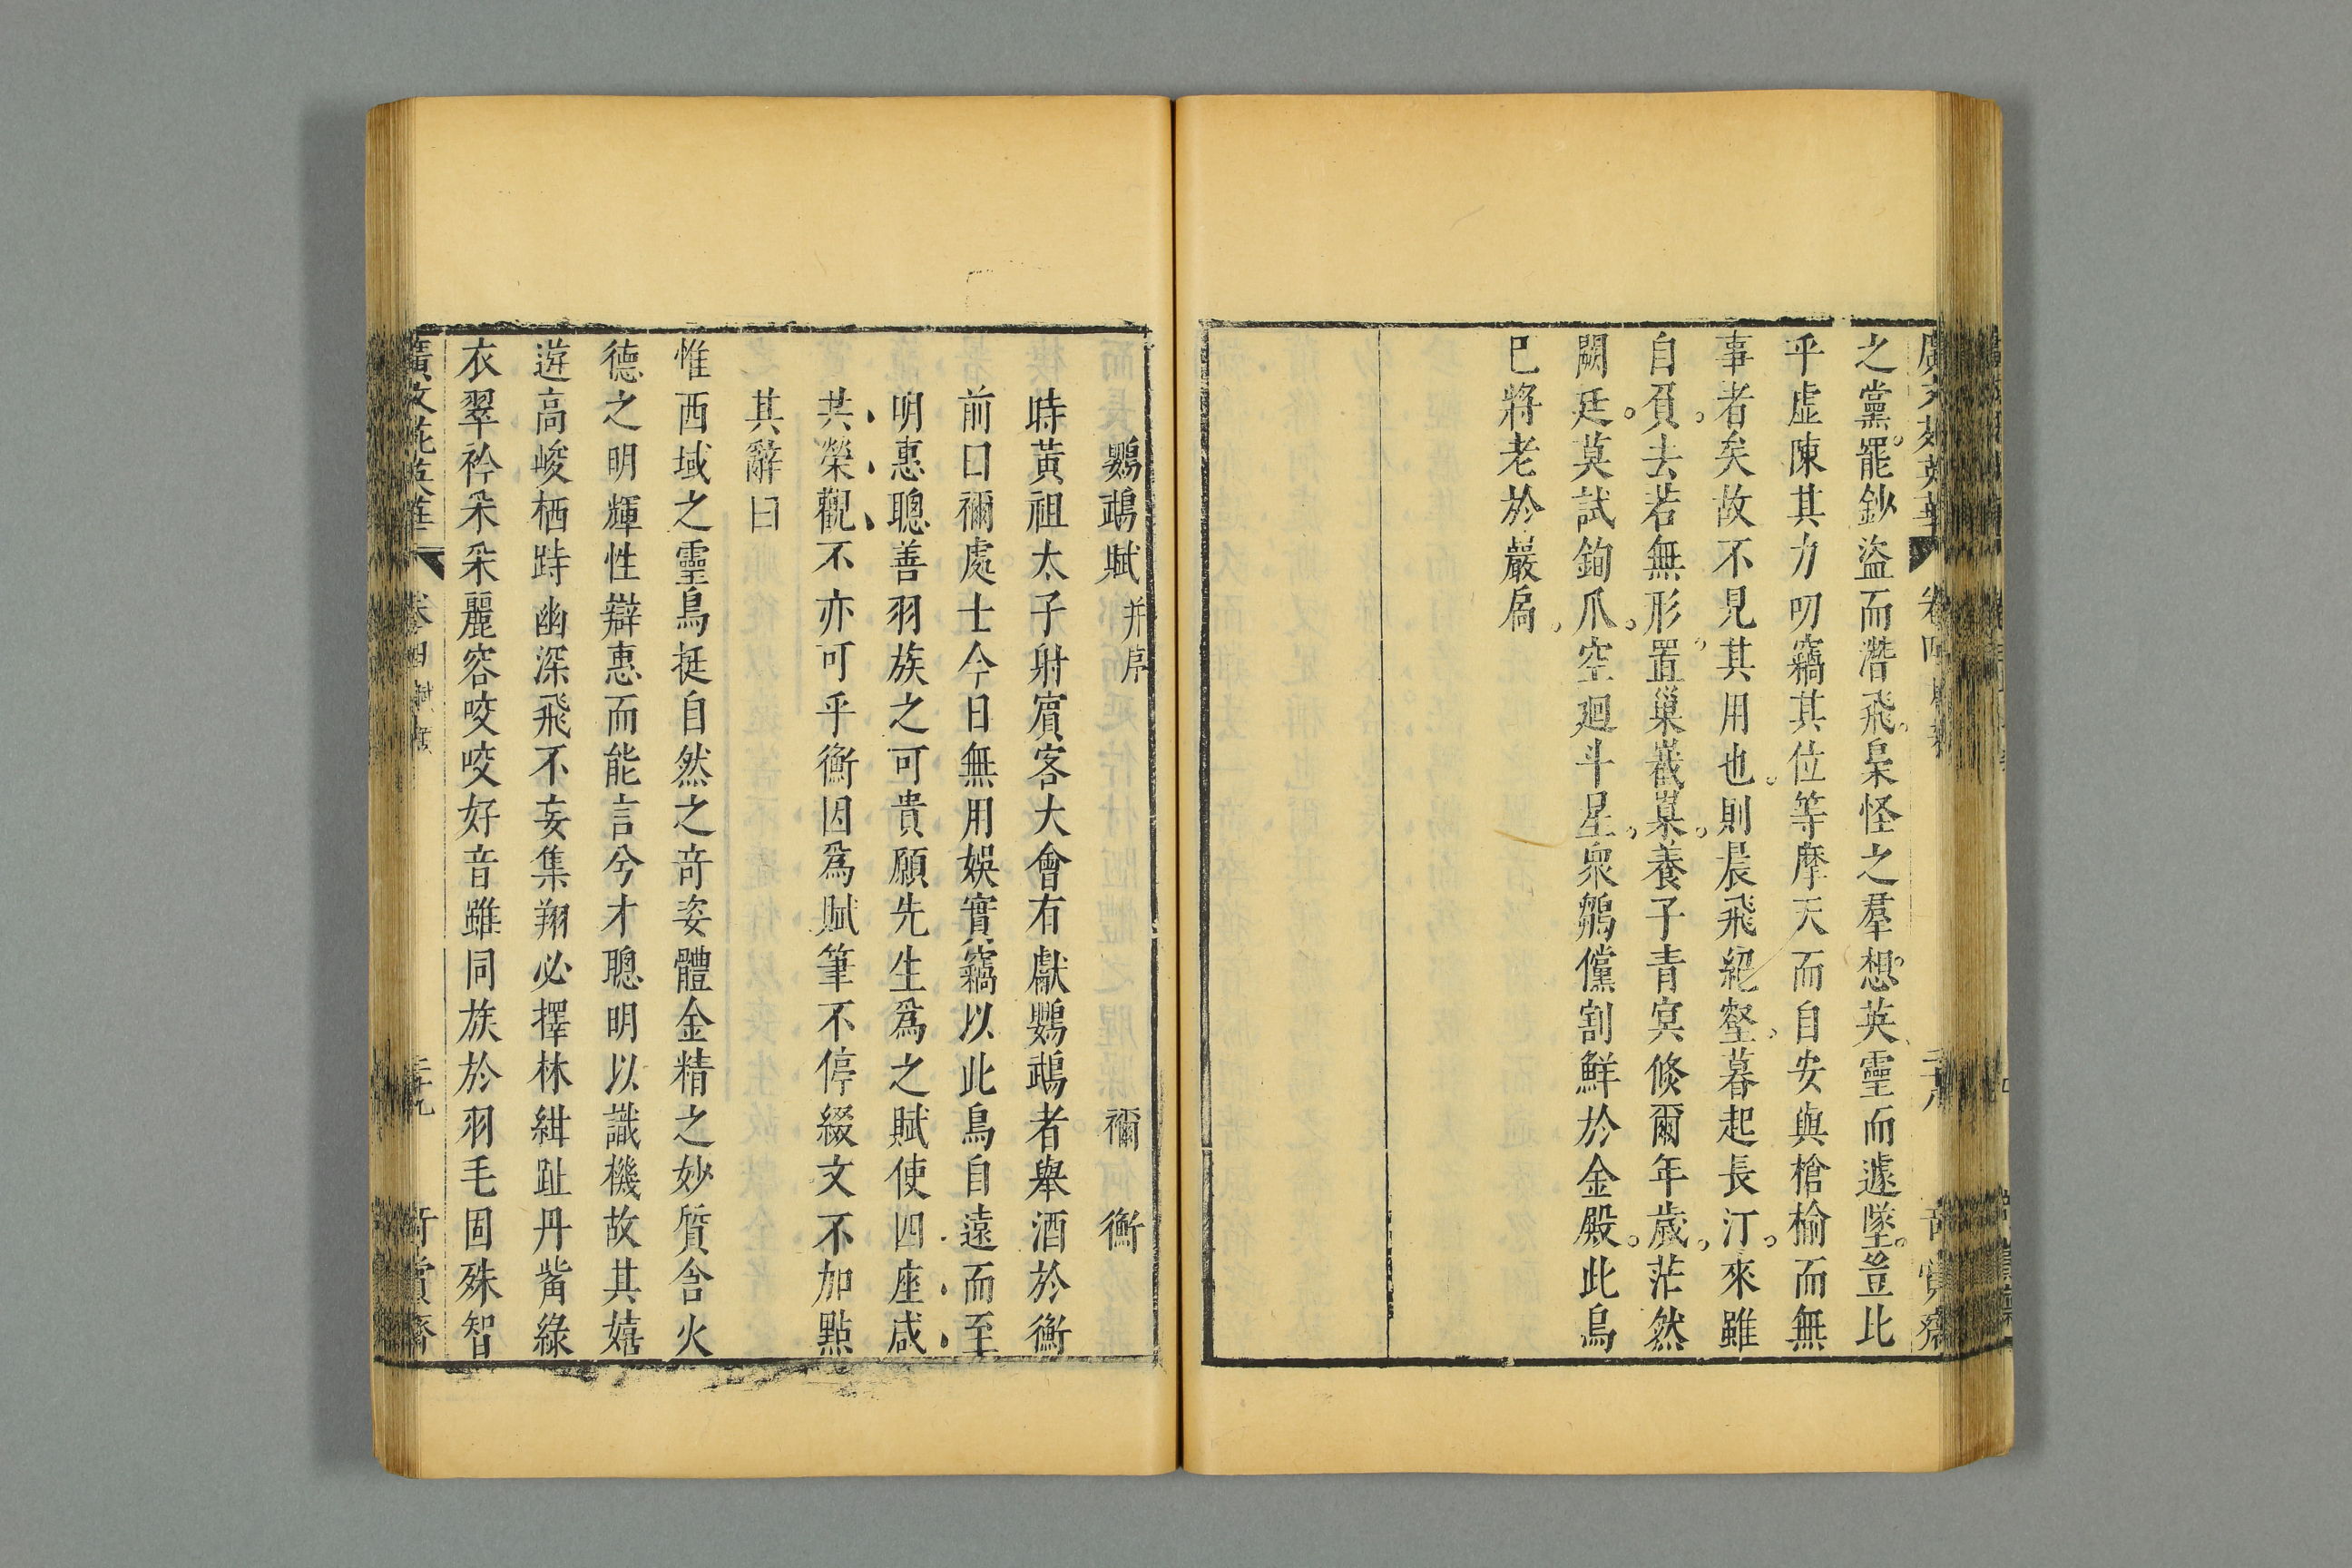 之黨罷鈔盜而潛飛梟怪之羣想英靈而遽墜豈比
乎虛陳其力叨竊其位等摩天而自安與槍榆而無
事者矣故不見其用也則晨飛絕壑暮起長汀來雖
自負去若無形置巢嶻嶪養子青冥倏爾年歲茫然
闕廷莫試鉤爪空廻斗星衆鶵儻割鮮於金殿此鳥
已將老於嚴扃
鸚鵡賦并序 禰衡
時黃祖太子射賓客大會有獻鸚鵡者舉酒於衡
前曰禰處士今日無用娛賓竊以此鳥自遠而至
明惠聰善羽族之可貴願先生爲之賦使四座咸
共榮觀不亦可乎衡因爲賦筆不停綴文不加點
其辭曰
惟西域之靈鳥挺自然之竒姿體金精之妙質含火
德之明輝性辯惠而能言兮才聰明以識機故其嬉
遊高峻栖跱幽深飛不妄集翔必擇林紺趾丹觜綠
衣翠衿采采麗容咬咬好音雖同族於羽毛固殊智
廣文苑英華 卷四 二十九